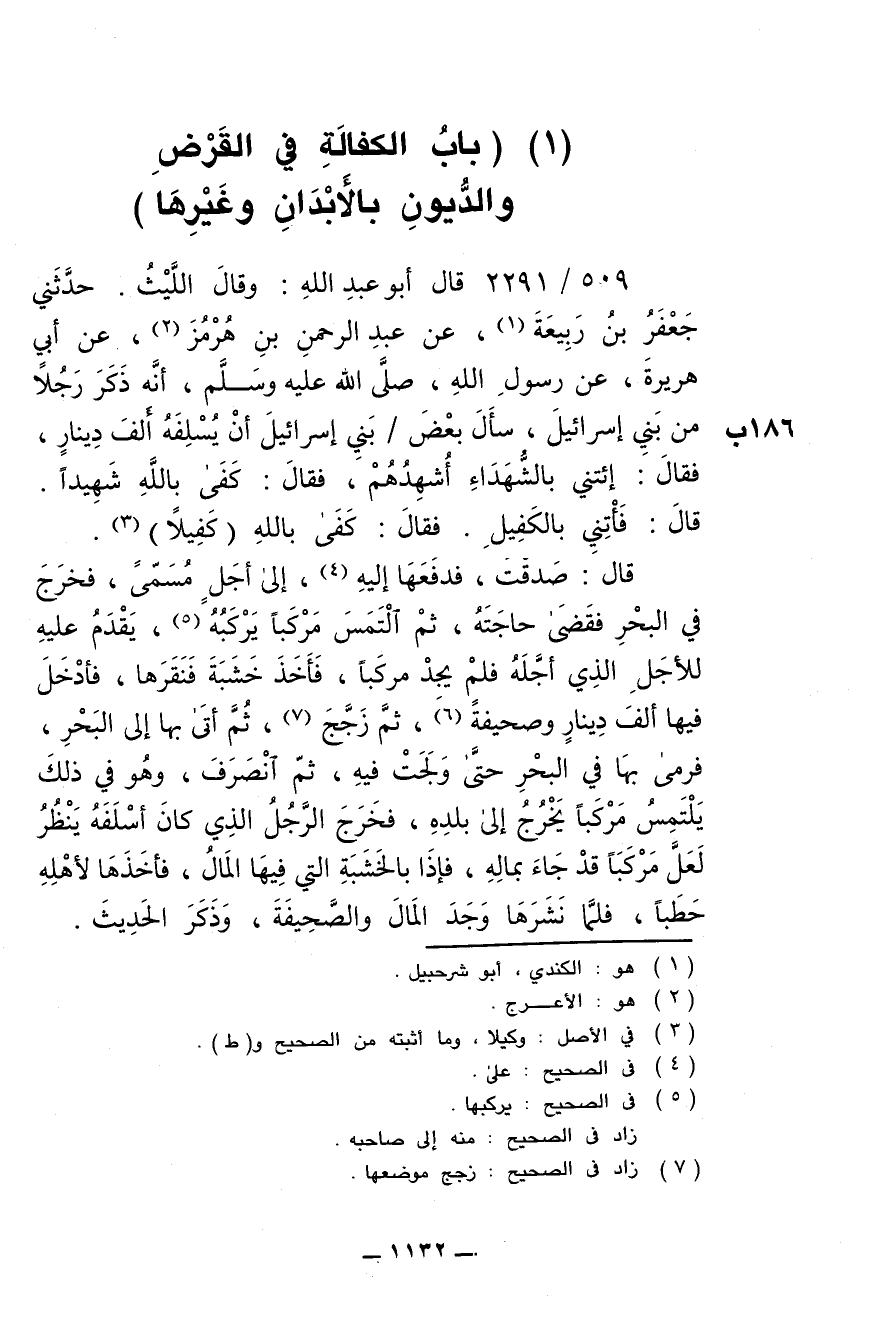 (١) (بابُ الكفالَةِ في القَرْضِ
والدُّيونِ بالأَبْدَانِ وغَيْرِهَا)
٥٠٩ / ٢٢٩١ قال أبو عبدِ اللهِ : وقالَ اللَّيْثُ . حدَّثَني
جَعْفَرُ بنُ رَبِيعَةَ (١) ، عن عبدِ الرحمنِ بنِ هُرْمُزَ (٢) ، عن أبي
هريرةَ ، عن رسولِ اللهِ ، صلَّى الله عليه وسَـــلَّم ، أنَّه ذَكَرَ رَجُلاً
١٨٦ب من بَنِي إسرائيلَ ، سألَ بعْضَ / بَنِي إسرائيلَ أنْ يُسْلِفَهُ ألفَ دِينارٍ ،
فقالَ : إئتني بالشُّهَدَاءِ أُشهِدُهُمْ ، فقالَ : كَفَىٰ باللَّهِ شَهِيداً .
قالَ : فَأْتِنِي بالكَفِيلِ . فقالَ : كَفَىٰ باللهِ (كَفِيلاً) (٣) .
قال : صَدقْتَ ، فدفَعَهَا إليهِ (٤) ، إلىٰ أجَلٍ مُسَمّىً ، فخرَجَ
في البحْرِ فقَضَىٰ حاجتَهُ ، ثمْ ٱلْتَمَسَ مَرْكَباً يَرْكَبُهُ (٥) ، يَقْدَمُ عليهِ
للأجَلِ الذِي أجَّلَهُ فلمْ يجِدْ مركَباً ، فَأَخَذَ خَشَبَةً فَنَقَرَها ، فأدْخَلَ
فيها ألفَ دِينارٍ وصحيفةً (٦) ، ثمَّ زَجَّجَ (٧) ، ثُمَّ أتَىٰ بها إلى البَحْرِ ،
فرمىٰ بهَا في البحْرِ حتَّىٰ وَلَجَتْ فيهِ ، ثمّ ٱنْصَرَفَ ، وهُو في ذلكَ
يَلْتَمِسُ مَرْكَباً يَخْرُجُ إلىٰ بلدِهِ ، فخَرَجَ الرَّجُلُ الذِي كانَ أسْلَفَهُ يَنْظُرُ
لَعَلَّ مَرْكَبَاً قدْ جَاءَ بمالِهِ ، فإذَا بالخَشَبَةِ التي فِيهَا المَالُ ، فأخَذَهَا لأهْلِهِ
حَطَباً ، فلمَّا نَشَرَهَا وَجَدَ المَالَ والصَّحِيفَةَ ، وَذَكَرَ الحَدِيثَ .
(١) هو : الكندي ، أبو شرحبيل .
(٢) هو : الأعـــرج .
(٣) في الأصل : وكيلا ، وما أثبته من الصحيح و(ط) .
(٤) فى الصحيح : علىٰ .
(٥) فى الصحيح : يركبها .
زاد فى الصحيح : منه إلى صاحبه .
(٧) زاد فى الصحيح : زجج موضعها .
ــ ١١٣٢ ــ